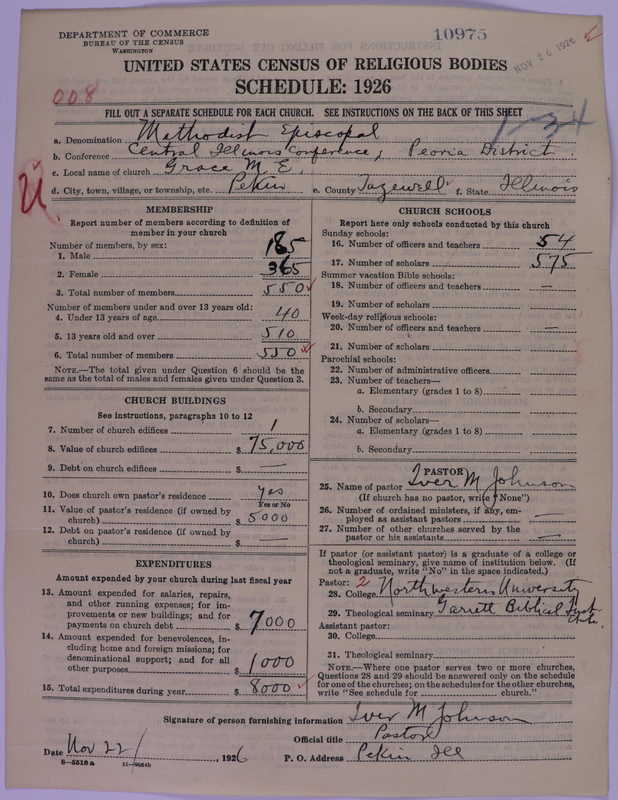 DEPARTMENT OF COMMERCE
BUREAU OF THE CENSUS
WASHINGTON
10975
NOV 26 1926
UNITED STATES CENSUS OF RELIGIOUS BODIES
SCHEDULE: 1926
008
FILL OUT A SEPARATE SCHEDULE FOR EACH CHURCH. SEE INSTRUCTIONS ON THE BACK OF THIS SHEET
a. Denomination Methodist Episcopal
b. Conference Central Illinois Conference, Peoria District.
c. Local name of church Grace M. E.
d. City, town, village, or township, etc. Pekin e. County Tazewell f. State Illinois
MEMBERSHIP
Report number of members according to definition of
member in your church
Number of members, by sex:
1. Male 185
2. Female 365
3. Total number of members 550
Number of members under and over 13 years old:
4. Under 13 years of age 40
5. 13 years old and over 510
6. Total number of members 550
NOTE.—The total given under Question 6 should be the
same as the total of males and females given under Question 3.
CHURCH BUILDINGS
See instructions, paragraphs 10 to 12
7. Number of church edifices 1
8. Value of church edifices $ 75,000
9. Debt on church edifices $ —
10. Does church own pastor's residence yes
Yes or No
11. Value of pastor's residence (if owned by
church) $ 5000
12. Debt on pastor's residence (if owned by
church) $ —
EXPENDITURES
Amount expended by your church during last fiscal year
13. Amount expended for salaries, repairs,
and other running expenses; for im-
provements or new buildings; and for
payments on church debt $ 7000
14. Amount expended for benevolences, in-
cluding home and foreign missions; for
denominational support; and for all
other purposes $ 1000
15. Total expenditures during year $ 8000
CHURCH SCHOOLS
Report here only schools conducted by this church
Sunday schools:
16. Number of officers and teachers 54
17. Number of scholars 575
Summer vacation Bible schools:
18. Number of officers and teachers —
19. Number of scholars
Week-day religious schools:
20. Number of officers and teachers —
21. Number of scholars
Parochial schools:
22. Number of administrative officers
23. Number of teachers—
a. Elementary (grades 1 to 8)
b. Secondary
24. Number of scholars—
a. Elementary (grades 1 to 8)
b. Secondary
PASTOR
25. Name of pastor Iver M Johnson
(If church has no pastor, write "None")
26. Number of ordained ministers, if any, em-
ployed as assistant pastors —
27. Number of other churches served by the
pastor or his assistants —
If pastor (or assistant pastor) is a graduate of a college or
theological seminary, give name of institution below. (If
not a graduate, write "No" in the space indicated.)
Pastor: 2
28. College Northwestern University
29. Theological seminary Garrett Biblical Insti-
tute
Assistant pastor:
30. College
31. Theological seminary
NOTE.—Where one pastor serves two or more churches,
Questions 28 and 29 should be answered only on the schedule
for one of the churches; on the schedules for the other churches,
write "See schedule for church."
Signature of person furnishing information Iver M Johnson
Official title Pastor
Date Nov 22, 1926 P. O. Address Pekin Ill
8—5518a